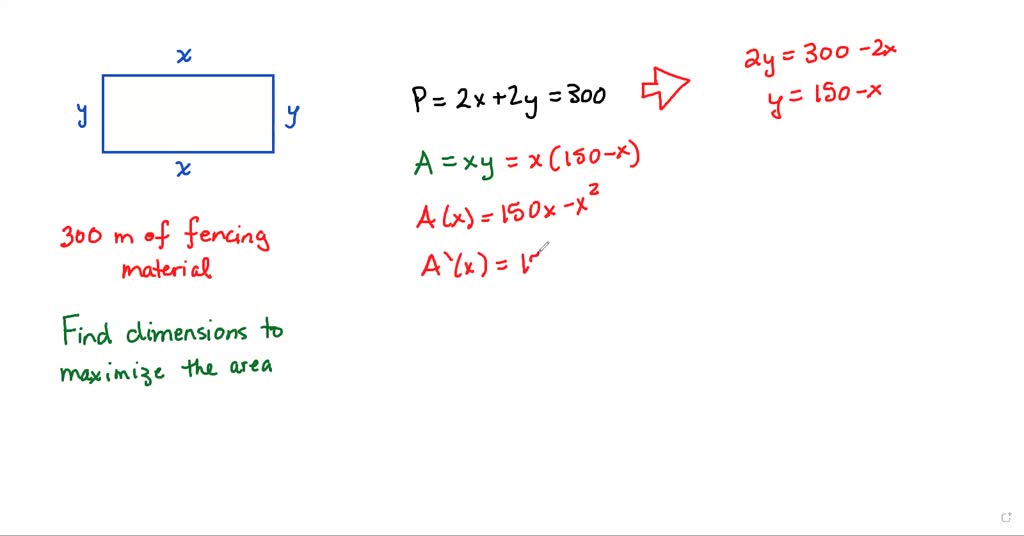 x
y
y
x
300 m of fencing
material
Find dimensions to
maximize the area
P = 2x + 2y = 300
2y = 300 - 2x
y = 150 - x
A = xy = x(150 - x)
A(x) = 150x - x²
A'(x) = 1